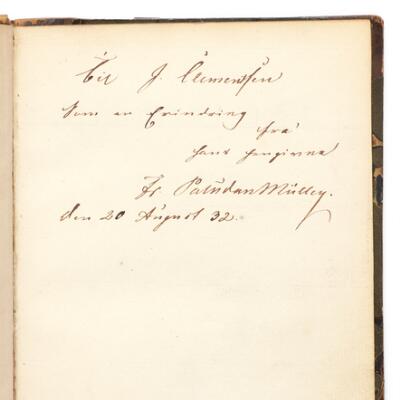 Til J. Clemensſen
Som en Erindring
fra
hans hengivne
Fr Paludan Müller.
den 20 August 32.